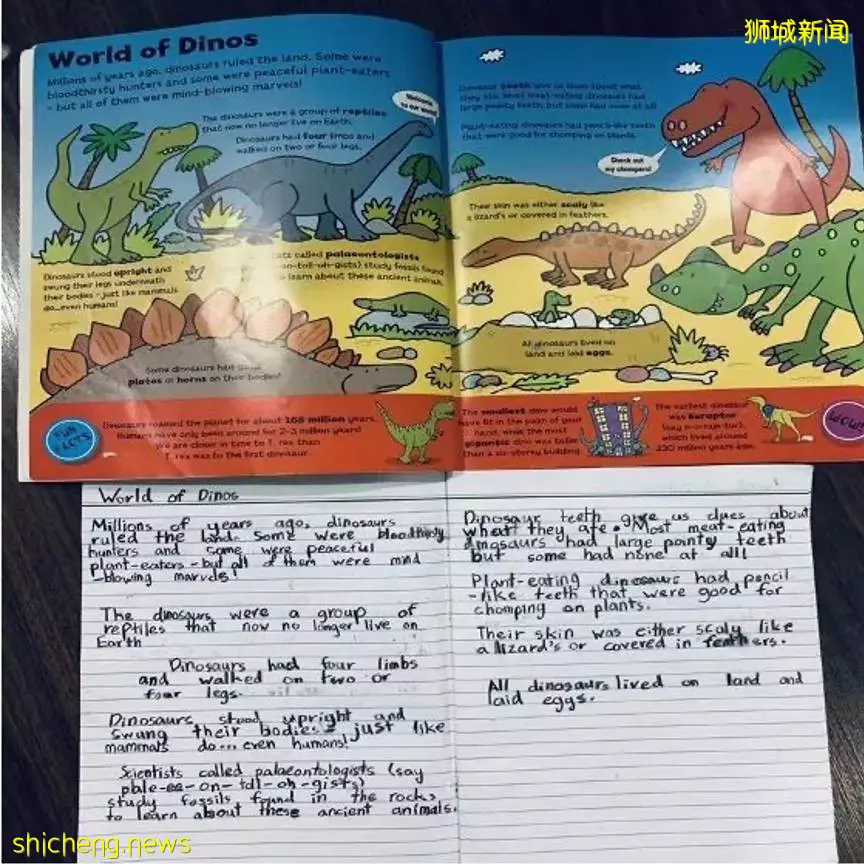 狮城新闻
World of Dinos
Millions of years ago, dinosaurs ruled the land. Some were
bloodthirsty hunters and some were peaceful plant-eaters
- but all of them were mind-blowing marvels!
Welcome
to our world!
The dinosaurs were a group of reptiles
that now no longer live on Earth.
Dinosaurs had four limbs and
walked on two or four legs.
Dinosaurs stood upright and
swung their legs underneath
their bodies - just like mammals
do...even humans!
called palaeontologists
on-toll-oh-gists) study fossils found
learn about these ancient animals.
Some dinosaurs had
plates or horns on their bodies!
FUN
Dinosaurs roamed the planet for about 168 million years.
Humans have only been around for 2-3 million years!
We are closer in time to T. rex than
T. rex was to the first dinosaur.
Dinosaur teeth give us clues about what
they ate. Most meat-eating dinosaurs had
large pointy teeth, but some had none at all.
Plant-eating dinosaurs had pencil-like teeth
that were good for chomping on plants.
Check out
my chompers!
Their skin was either scaly like
a lizard's or covered in feathers.
All dinosaurs lived on
land and laid eggs.
The smallest dino would
have fit in the palm of your
hand, while the most
gigantic dino was taller
than a six-storey building.
The earliest dinosaur
was Eoraptor
which lived around
230 million years ago.
WOW!
World of Dinos
Millions of years ago, dinosaurs
ruled the land. Some were bloodthirsty
hunters and some were peaceful
plant-eaters - but all of them were mind
-blowing marvels!
The dinosaurs were a group of
reptiles that now no longer live on
Earth
Dinosaurs had four limbs
and walked on two or
four legs.
Dinosaurs stood upright and
swung their bodies - just like
mammals do... even humans!
Scientists called palaeontologists (say
pale-ee-on-tdl-oh-gists)
study fossils found in the rocks
to learn about these ancient animals.
Dinosaur teeth give us clues about
what they ate. Most meat-eating
dinosaurs had large pointy teeth
but some had none at all
Plant-eating dinosaurs had pencil
-like teeth that were good for
chomping on plants.
Their skin was either scaly like
a lizard's or covered in feathers.
All dinosaurs lived on land and
laid eggs.
shicheng.news